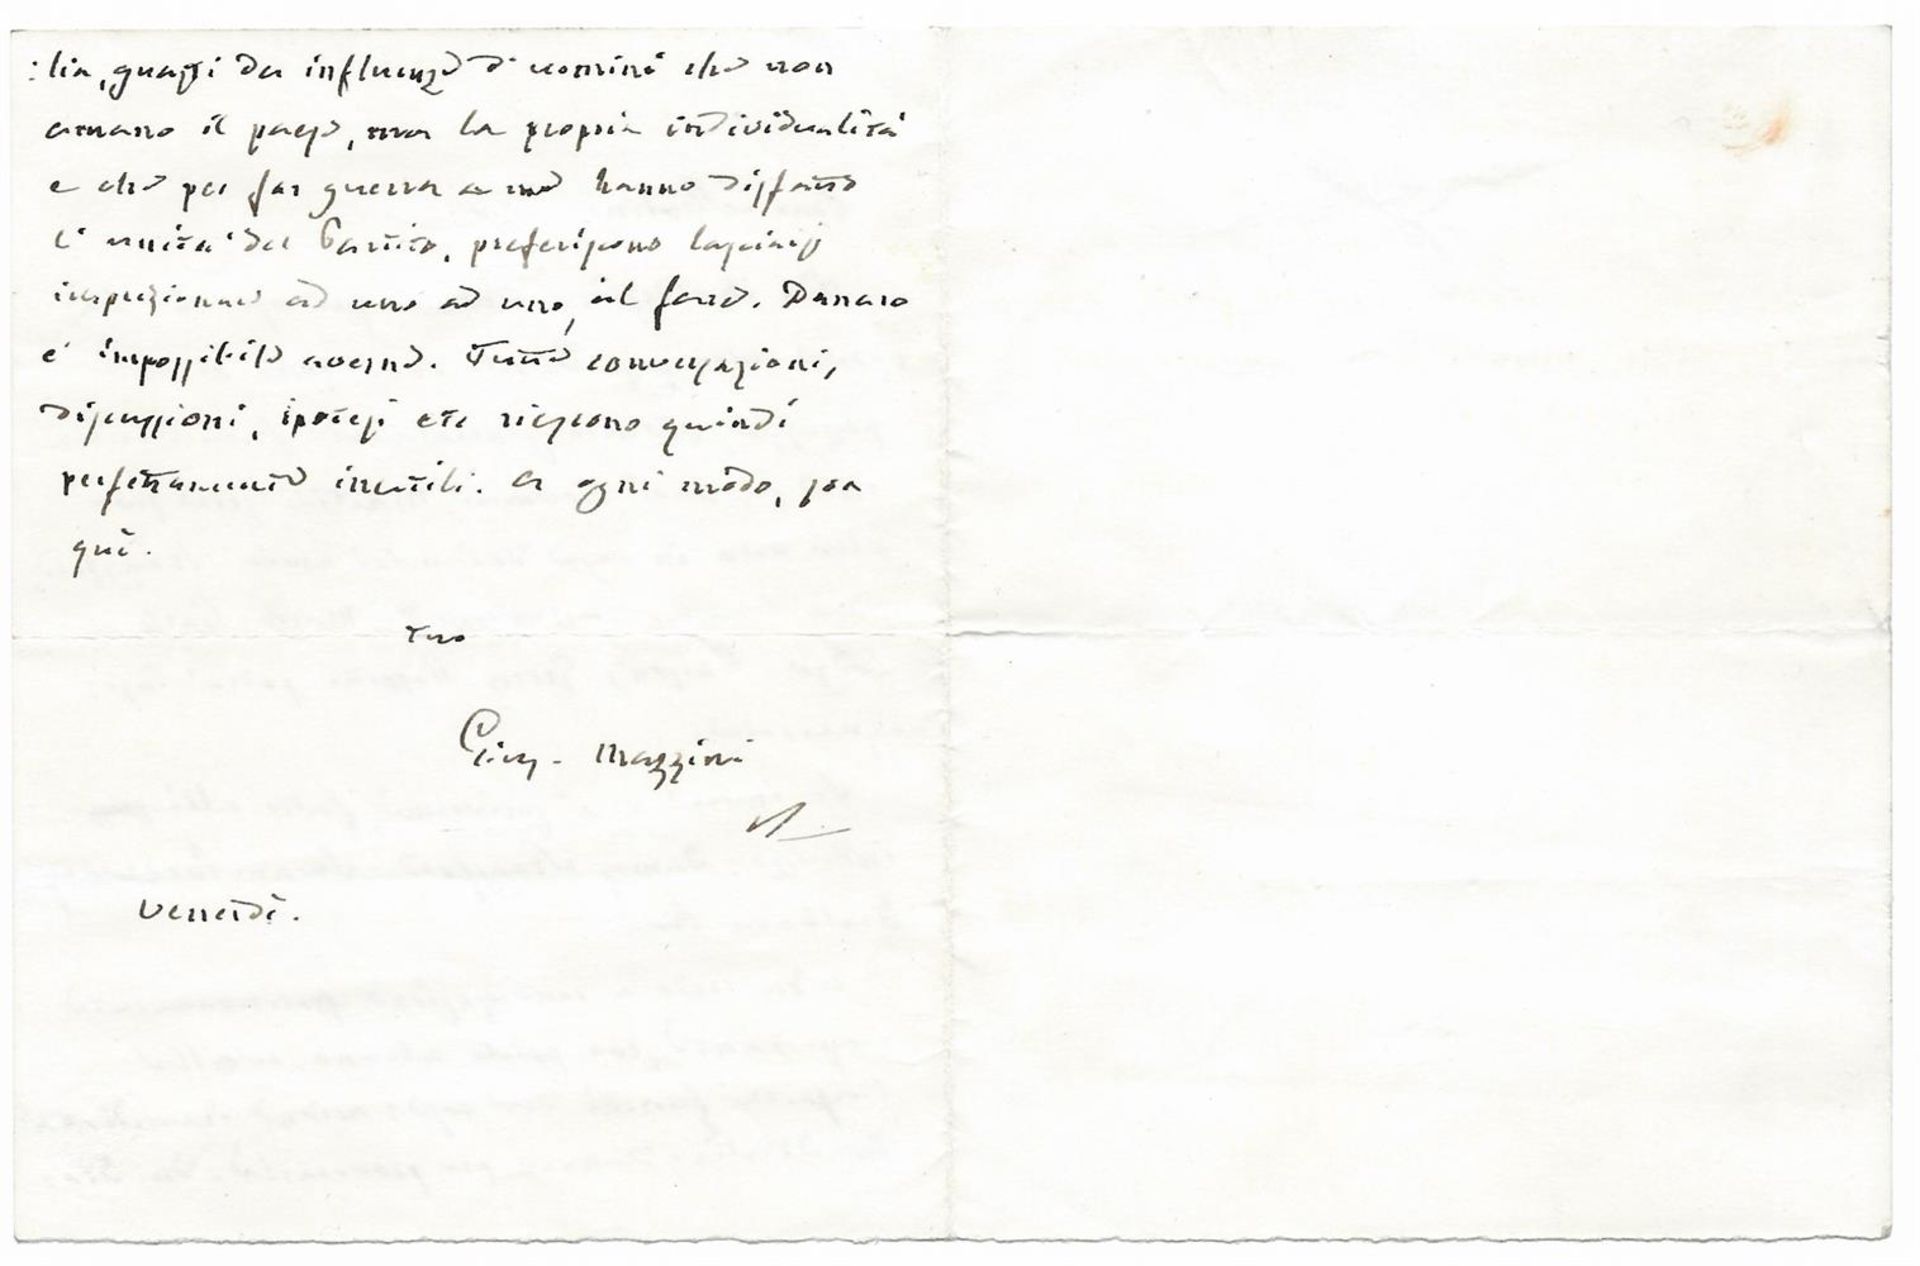 :lia, guasti da influenze d'uomini che non
amano il paese, ma la propria individualità
e che per far guerra a me hanno disfatto
l'unità del Partito, preferiscono lasciarsi
imprigionare ad uno ad uno, al fare. Danaro
è impossibile averne. Tutte conversazioni,
discussioni, ipotesi etc riescono quindi
perfettamente inutili. A ogni modo, son
qui.
Tuo
Gius. Mazzini
Venerdì.